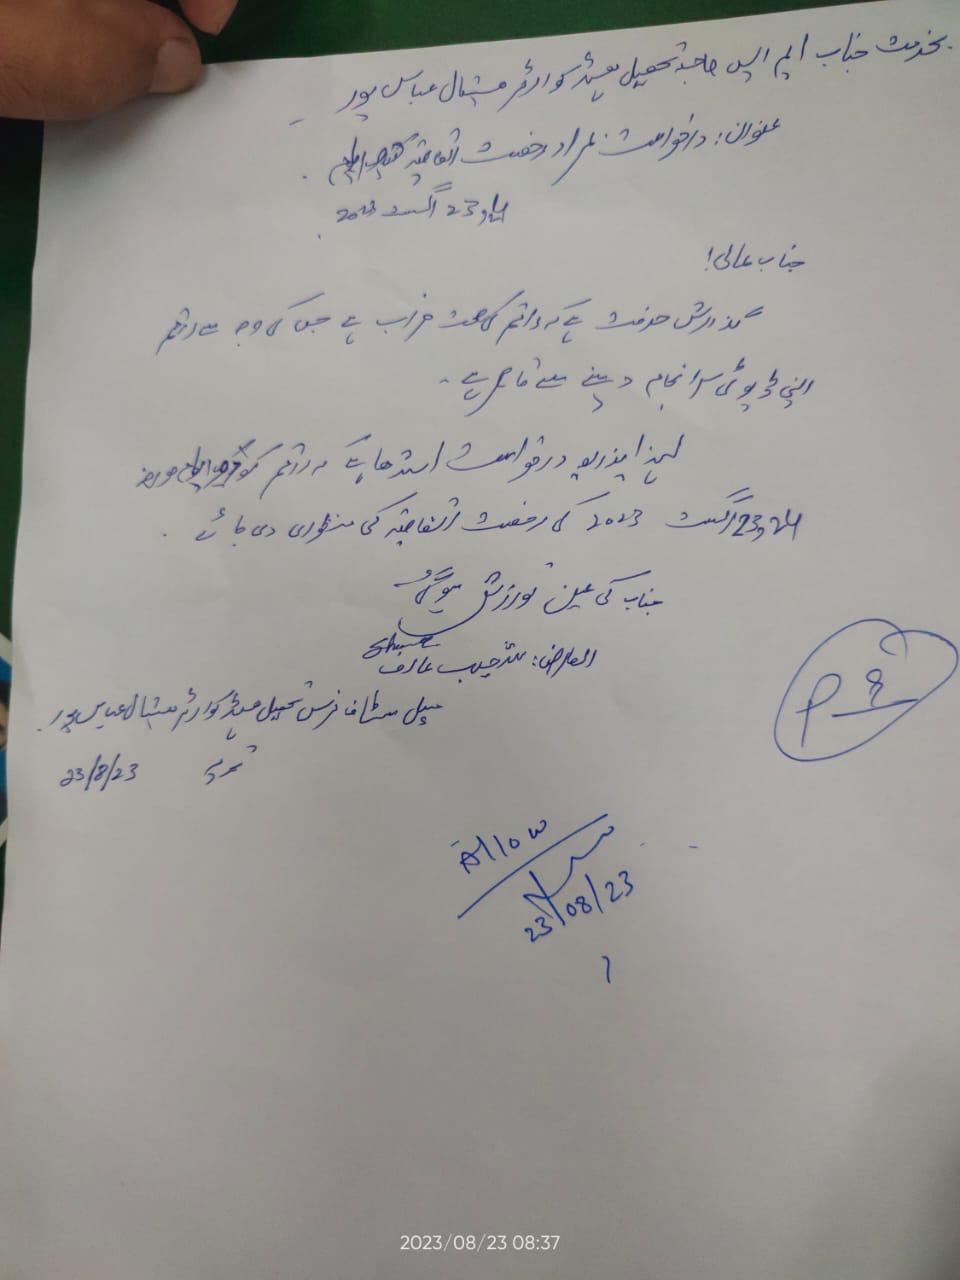 بخدمت جناب ایم ایس صاحب تحصیل ہیڈ کوارٹر ہسپتال عباس پور
عنوان: درخواست بمراد رخصت اتفاقیہ
24, 23 اگست 2023
جناب عالی!
گذارش خدمت ہے کہ راقم کی صحت خراب ہے جس کی وجہ سے راقم
اپنی ڈیوٹی سرانجام دینے سے قاصر ہے۔
لہذا بذریعہ درخواست استدعا ہے کہ راقم کو مورخہ
23, 24 اگست 2023 کی رخصت اتفاقیہ کی منظوری دی جائے۔
جناب کی عین نوازش ہوگی
العارض: عارف
میل سٹاف نرس تحصیل ہیڈ کوارٹر ہسپتال عباس پور۔
23/8/23
Allow
23/08/23
2023/08/23 08:37